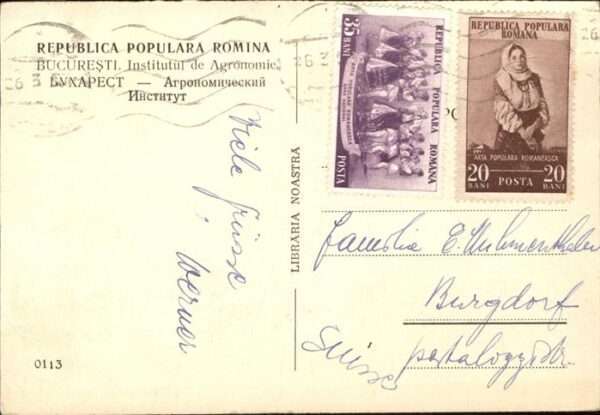 REPUBLICA POPULARA ROMINA
BUCUREȘTI. Institutul de Agronomie
БУХАРЕСТ — Агрономический
Институт
Viele Grüsse
Werner
0113
LIBRARIA NOASTRA
35 BANI
REPUBLICA POPULARA ROMANA
ARTA POPULARA ROMANEASCA
POSTA
REPUBLICA POPULARA
ROMANA
ARTA POPULARA ROMANEASCA
20 BANI
POSTA
20 BANI
Familie E.
Burgdorf
Suisse